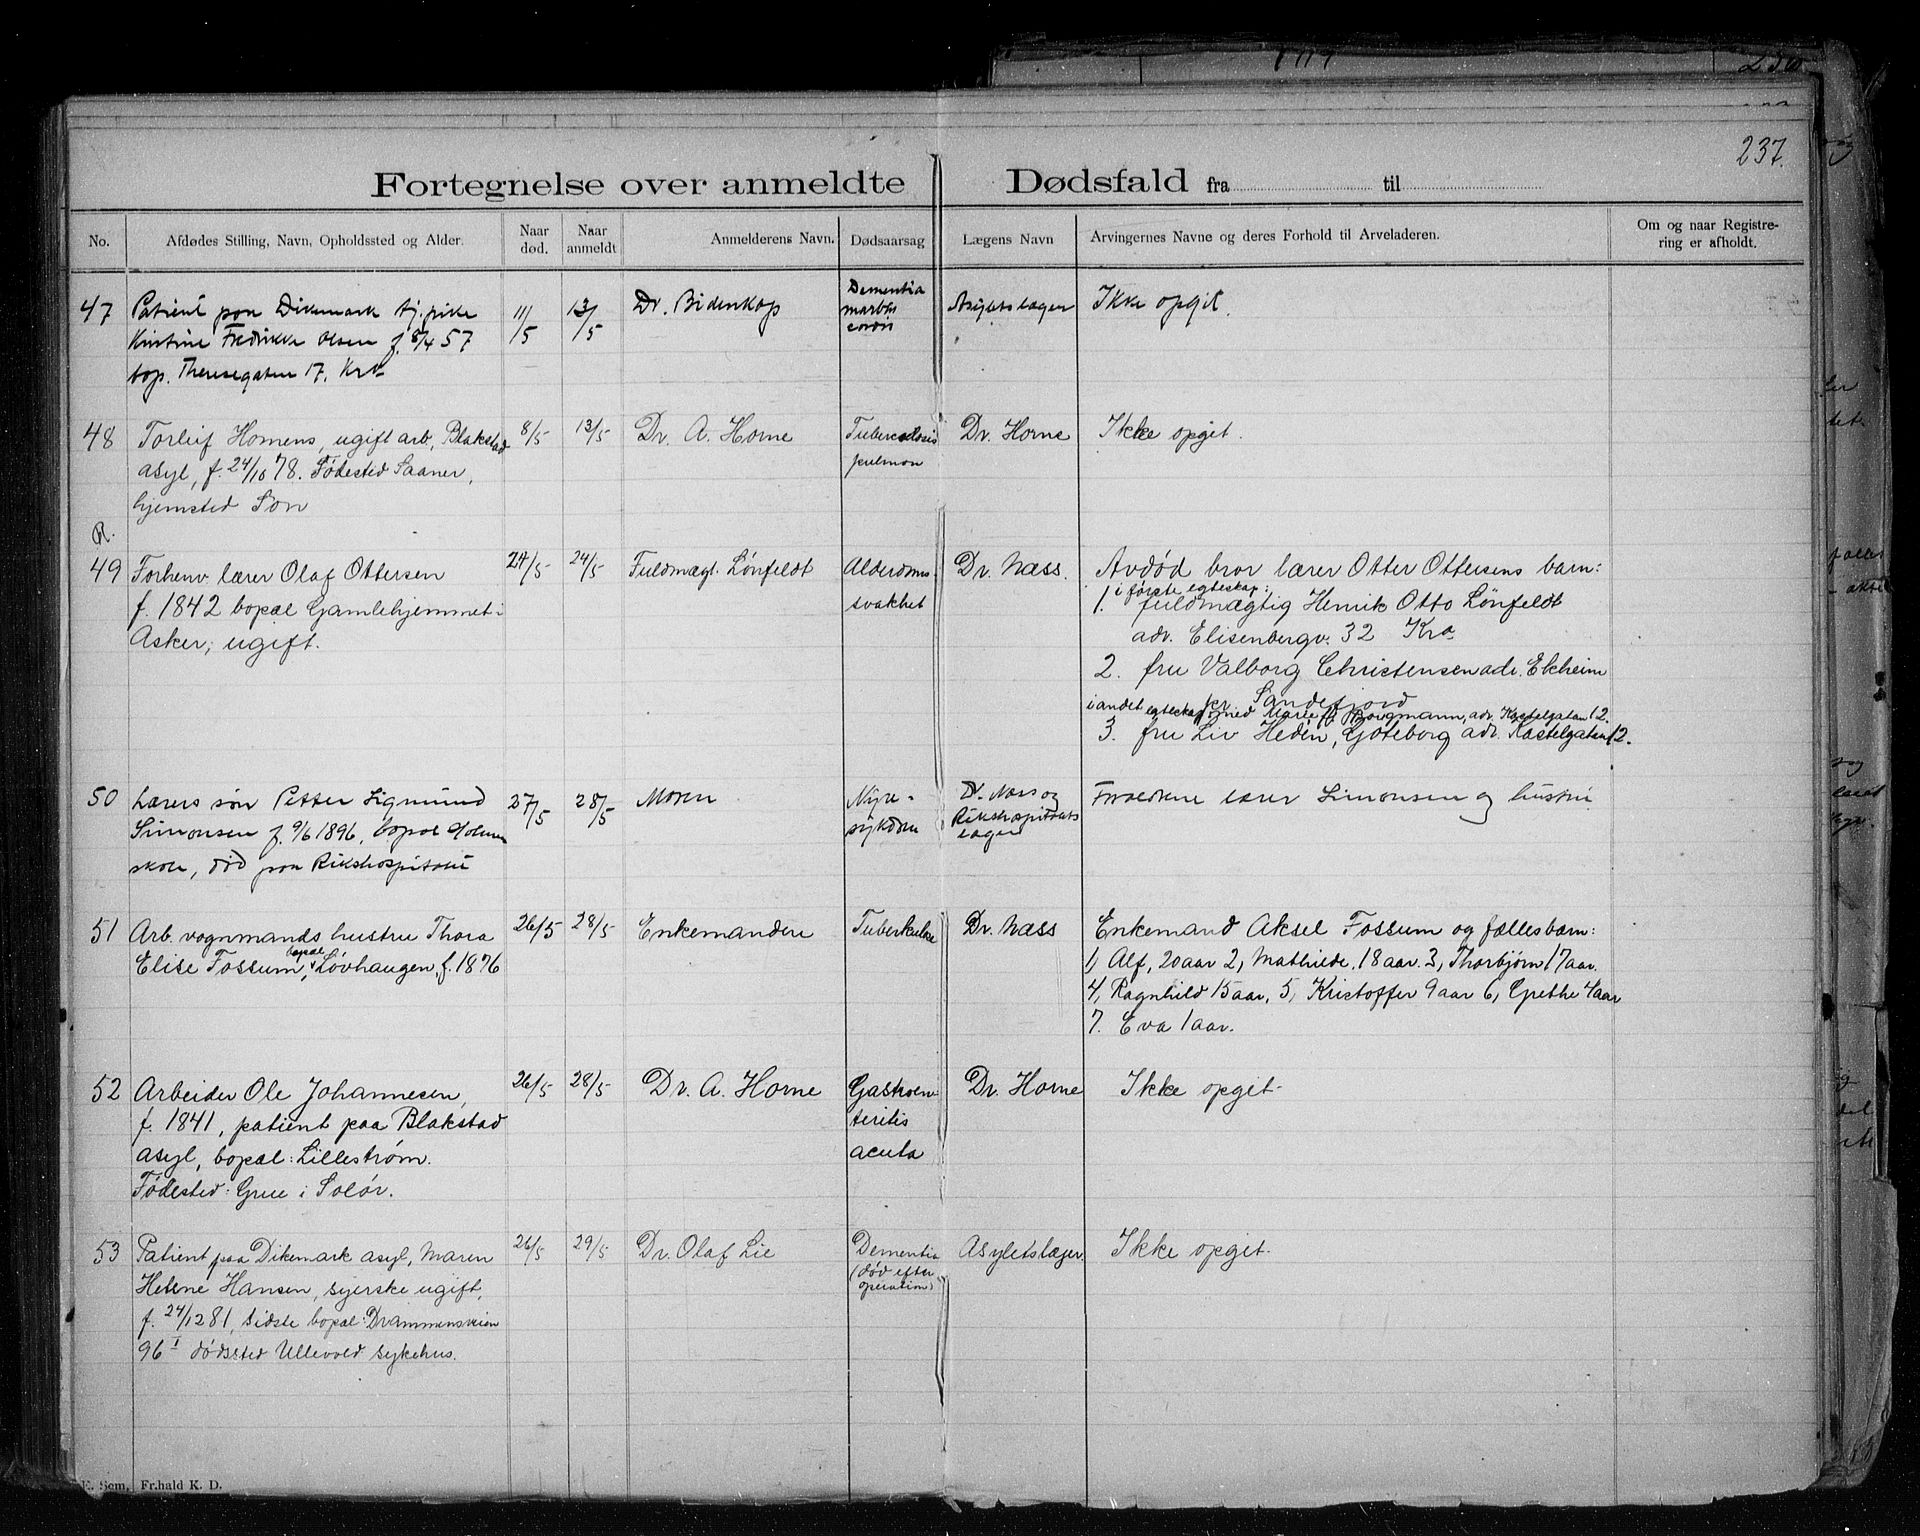 237.
Fortegnelse over anmeldte Dødsfald fra til
No.
Afdødes Stilling, Navn, Opholdssted og Alder.
Naar død.
Naar anmeldt
Anmelderens Navn.
Dødsaarsag
Lægens Navn
Arvingernes Navne og deres Forhold til Arveladeren.
Om og naar Registrering er afholdt.
47
Patient paa Dikemark tj. pike
Kristine Fredrikke Olsen f. 8/4 57
bop. Theresegaten 17, Kra
11/5
13/5
Dr. Bidenkap
Dementia
morbus
cordis
Asylets læger
Ikke opgit.
48
Torleif Homens, ugift arb, Blakstad
asyl, f. 24/10 78. Fødested Saaner,
hjemsted Son
8/5
13/5
Dr. A. Horne
Tuberculosis
pulmon
Dr. Horne
Ikke opget.
R.
49
Forhenv. lærer Olaf Ottersen
f. 1842 bopæl Gamlehjemmet i
Asker, ugift.
24/5
24/5
Fuldmægt. Lønfeldt
Alderdoms-
svakhet
Dr. Næss.
Avdød bror lærer Otter Ottersens barn:
i første egteskap:
1. fuldmægtig Henrik Otto Lønfeldt
adr. Elisenbergv. 32 Kra
2. fru Valborg Christensen adr. Ekheim
pr Sandefjord
i andet egteskap med Marie f. Borgmann, adr. Kastelgatan 12.
3. fru Liv Hedén, Gøteborg adr. Kastelgatan 12.
50
Lærers søn Petter Sigmund
Simonsen f. 9/6 1896, bopæl Holmen
skole, død paa Rikshospitalet
27/5
28/5
Moren
Nyre-
sykdom
Dr. Næss og
Rikshospitalets
læger
Forældrene lærer Simonsen og hustru
51
Arb. vognmands hustru Thora
Elise Fossum, bopæl Løvhaugen, f. 1876
26/5
28/5
Enkemanden
Tuberkulose
Dr. Næss
Enkemand Aksel Fossum og fællesbarn:
1, Alf, 20 aar 2, Mathilde, 18 aar. 3, Thorbjørn 17 aar.
4, Ragnhild 15 aar, 5, Kristoffer 9 aar 6, Grethe 4 aar
7. Eva 1 aar.
52
Arbeider Ole Johannesen,
f. 1841, patient paa Blakstad
asyl, bopæl: Lillestrøm.
Fødested: Grue i Solør.
26/5
28/5
Dr. A. Horne
Gastroen-
teritis
acuta
Dr. Horne
Ikke opget.
53
Patient paa Dikemark asyl, Maren
Helene Hansen, syerske ugift,
f. 24/12 81, sidste bopæl: Drammensveien
96 I dødssted Ullevold sykehus.
26/5
29/5
Dr. Olaf Lie
Dementia
(død efter
operation)
Asylets læger.
Ikke opget.
E. Sem, Fr.hald K. D.